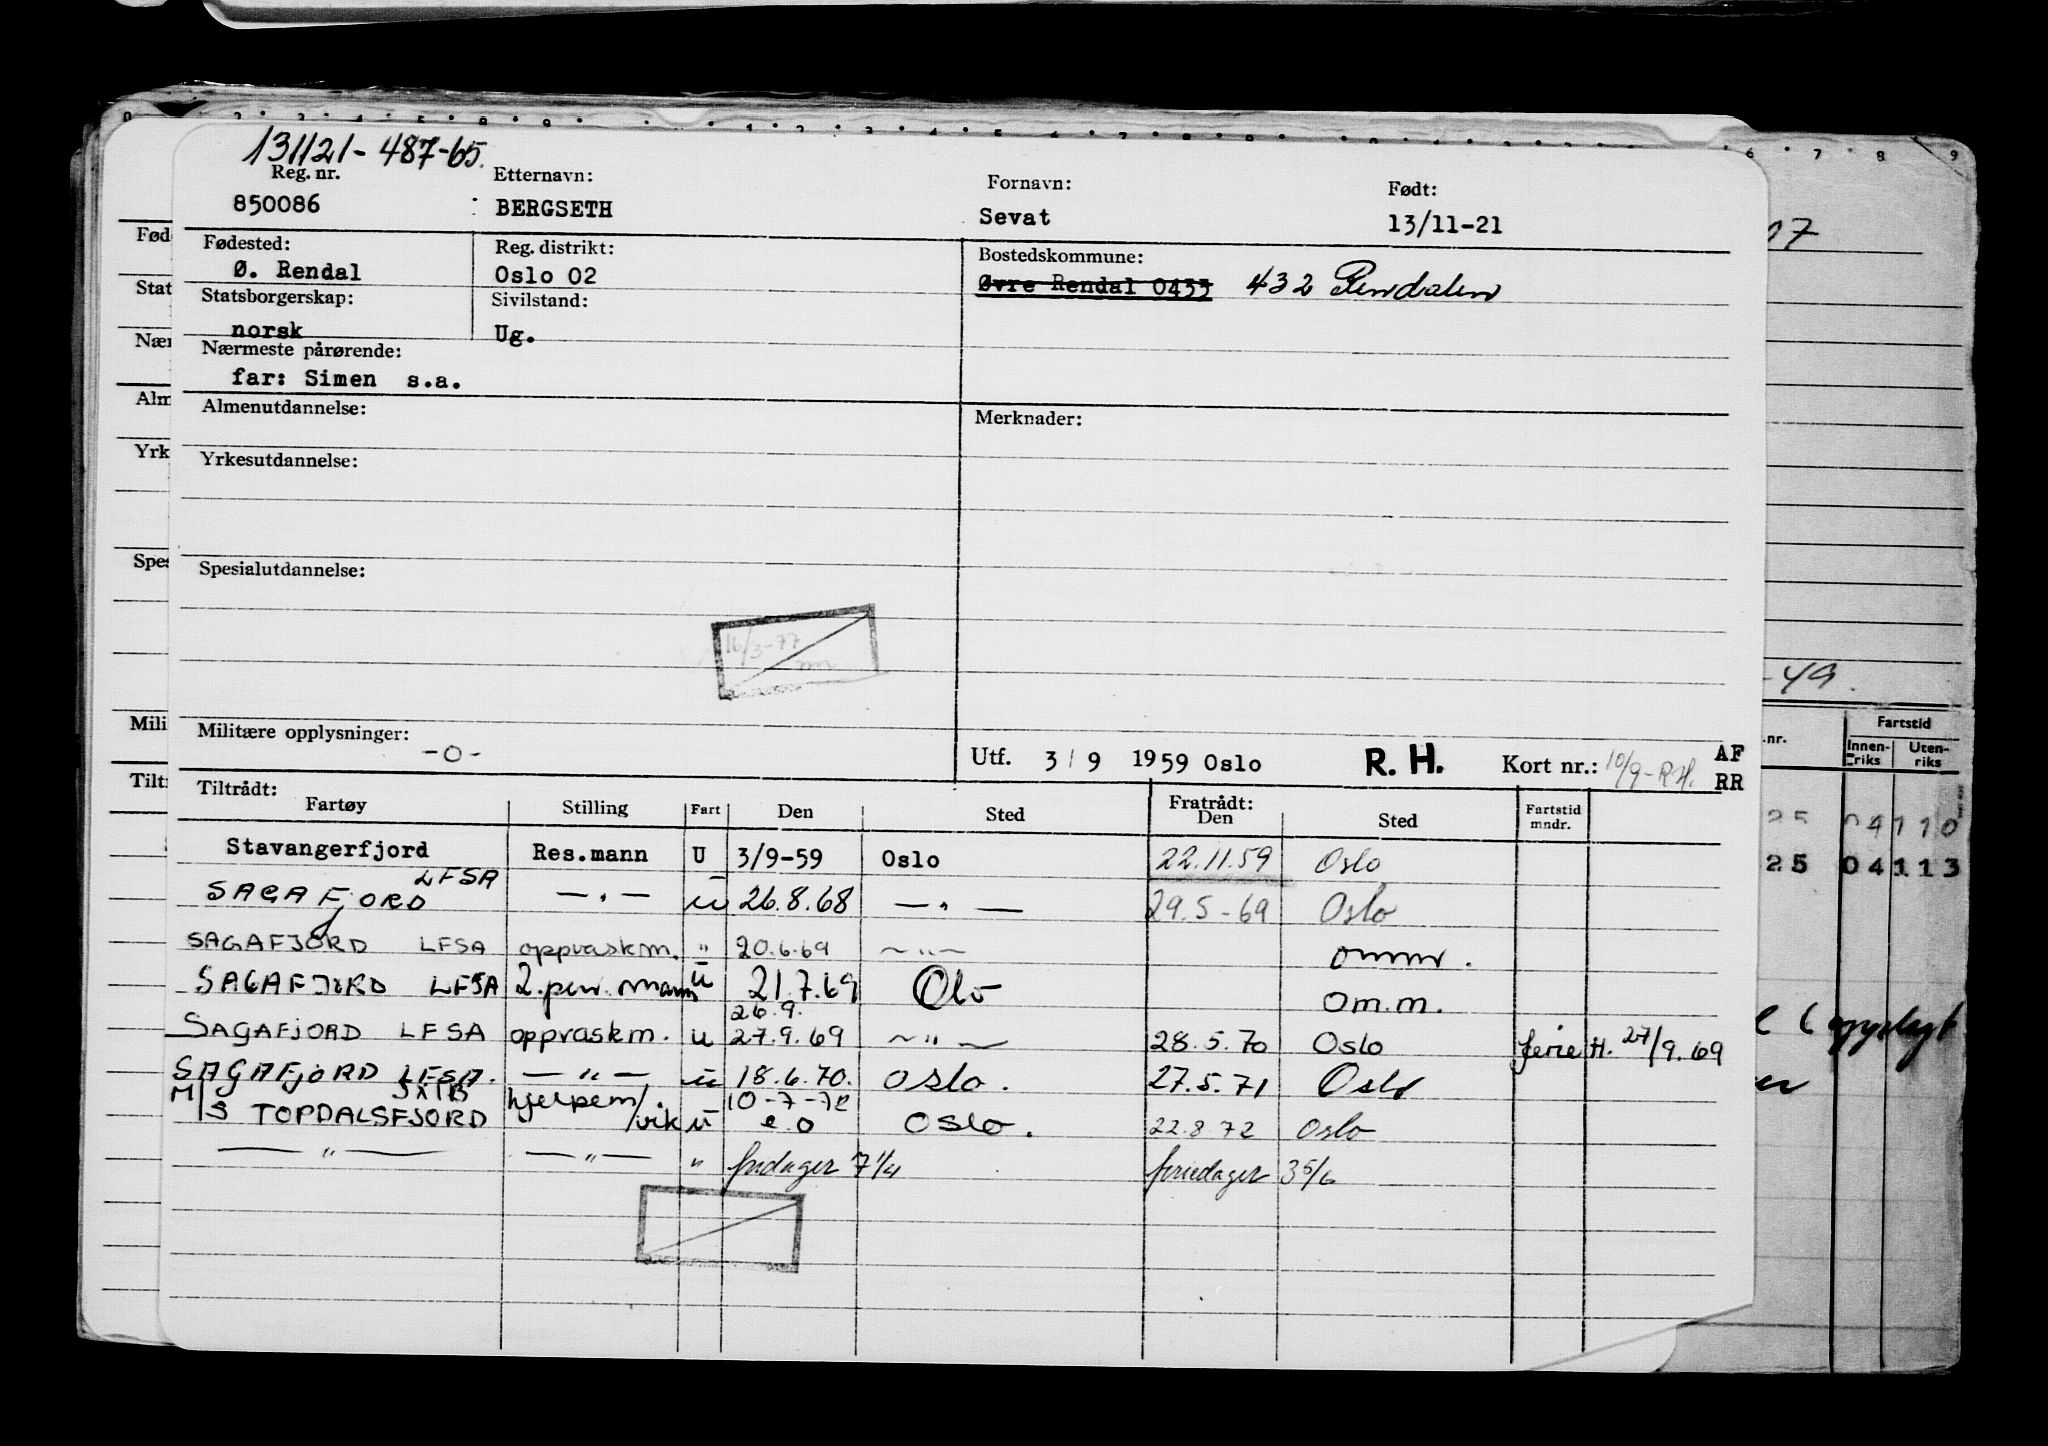 131121-487-65.
Reg. nr. Etternavn: Fornavn: Født:
850086 BERGSETH Sevat 13/11-21
Fødested: Reg. distrikt: Bostedskommune:
Ø. Rendal Oslo 02 Øvre Rendal 0433 432 Rendalen
Statsborgerskap: Sivilstand:
norsk Ug.
Nærmeste pårørende:
far: Simen s.a.
Almenutdannelse: Merknader:
Yrkesutdannelse:
Spesialutdannelse:
16/3-77
Militære opplysninger: -0-
Utf. 3/9 1959 Oslo R. H. Kort nr.: 10/9-R.H. AF RR
Tiltrådt: Fratrådt:
Fartøy Stilling Fart Den Sted Den Sted Fartstid mndr.
Stavangerfjord Res.mann U 3/9-59 Oslo 22.11.59 Oslo
SAGAFJORD LFSA — " — u 26.8.68 — " — 29.5-69 Oslo
SAGAFJORD LFSA oppvaskm. " 20.6.69 — " — ommr.
SAGAFJORD LFSA 2. pen. mann u 21.7.69 Olo om.m.
26.9.
SAGAFJORD LFSA oppvaskm. u 27.9.69 — " — 28.5.70 Oslo ferie H. 27/9.69
SAGAFJORD LFSA. — " — u 18.6.70. oslo. 27.5.71 Oslo
M/S TOPDALSFJORD hjelpem/vik u 10-7-72 e.o oslo. 22.8.72 Oslo
— " — — " — " fridager 7 1/4 feriedager 35/6
Fød
Stat
Nær
Alm
Yrk
Spes
Mili
Tilt
07
-49.
.nr. Fartstid
Innen-riks Uten-riks
25 04110
25 04113